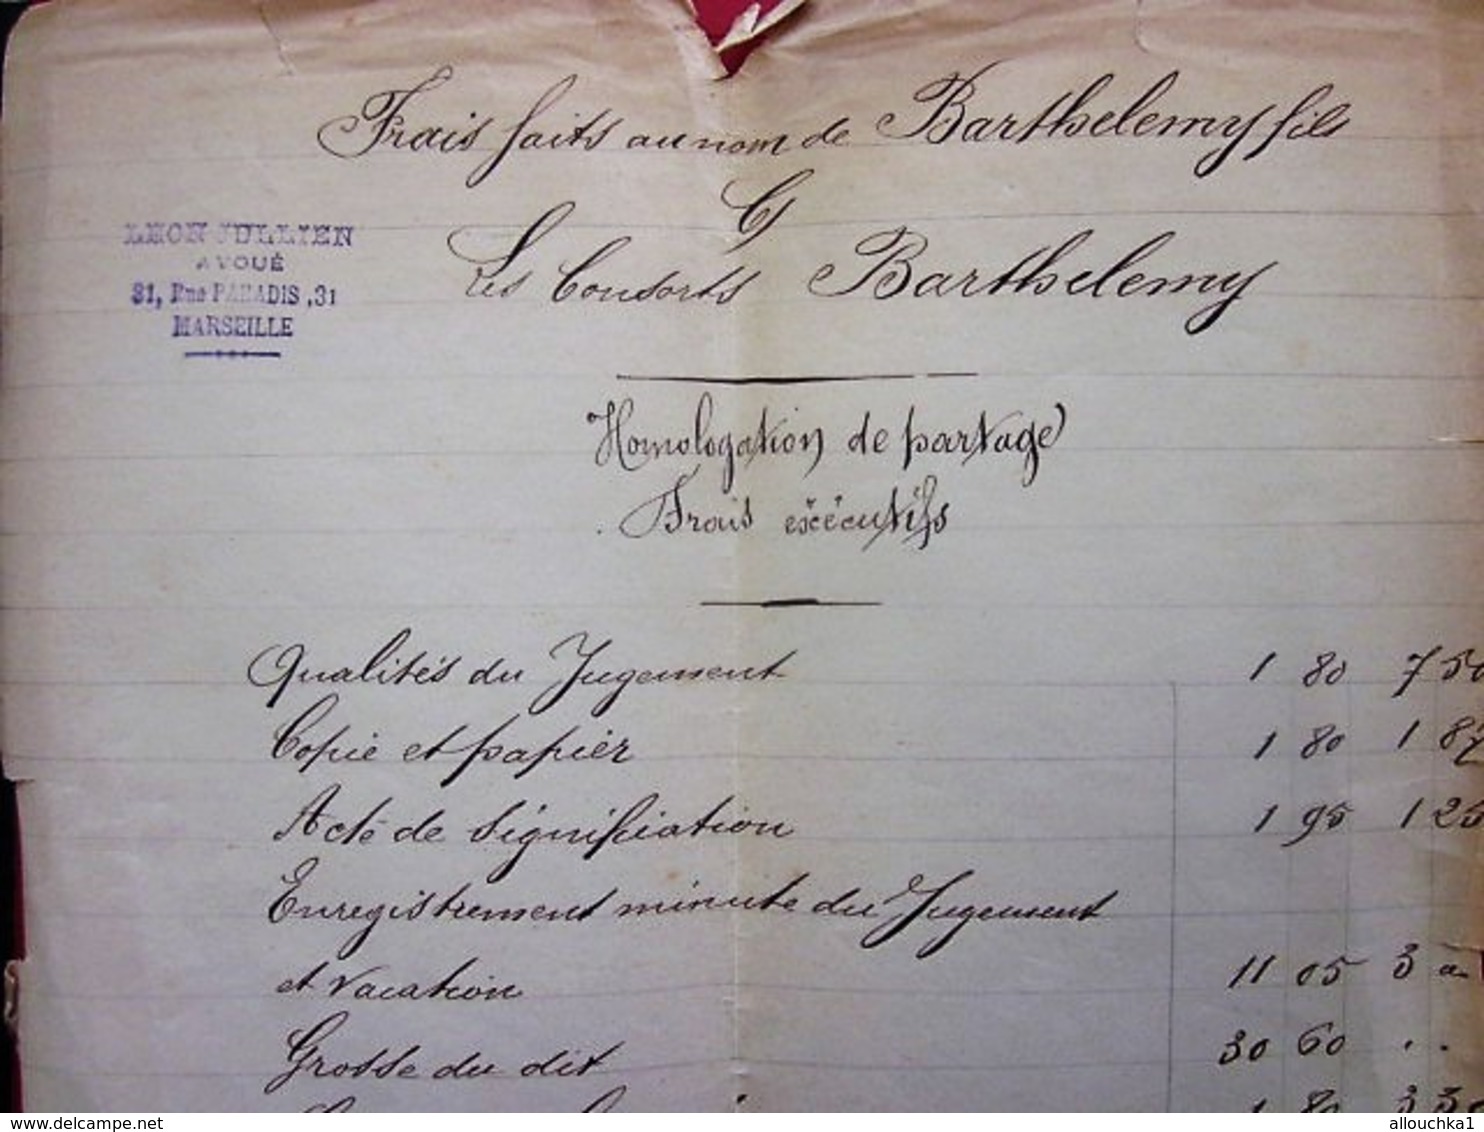 Frais faits au nom de Barthelemy fils
C/
Les Consorts Barthelemy
LEON JULLIEN
AVOUÉ
31, Rue PARADIS, 31
MARSEILLE
Homologation de partage
Frais exécutifs
Qualités du Jugement 1 80 7 50
Copie et papier 1 80 1 87
Acte de Signification 1 95 1 25
Enregistrement minute du Jugement
et vacation 11 05 3 "
Grosse du dit 30 60 . .
1 80 3 30
delcampe.net
allouchka1